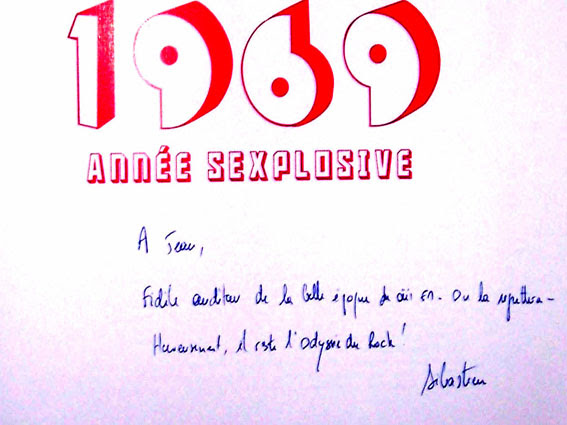 1969
ANNÉE SEXPLOSIVE
A Jean,
Fidèle auditeur de la belle époque de Oüi FM. On la regrettera -
Heureusement, il reste l'Odyssée du Rock !
Sébastien